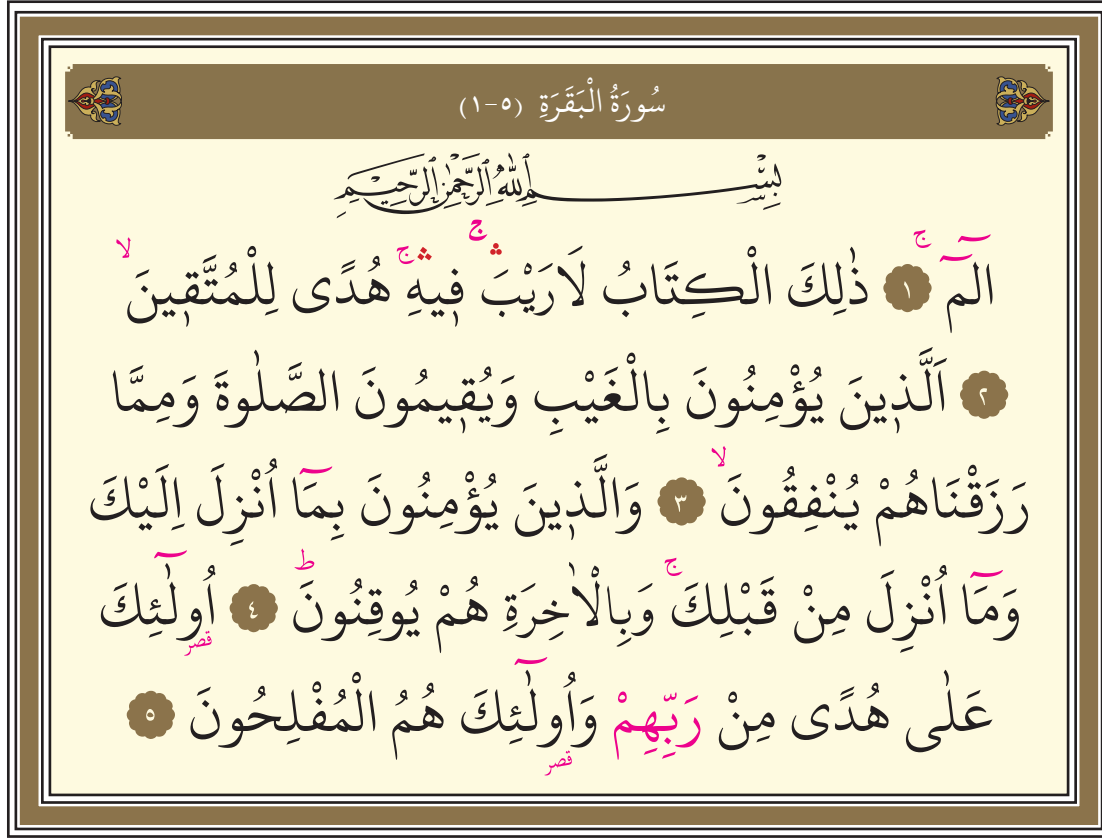 سُورَةُ الْبَقَرَةِ (١-٥)
بِسْمِ اللّٰهِ الرَّحْمٰنِ الرَّحِيمِ
الٓمٓ ۚ ﴿١﴾ ذٰلِكَ الْكِتَابُ لَارَيْبَۚۛ فٖيهِۚۛ هُدًى لِلْمُتَّقٖينَۙ
﴿٢﴾ اَلَّذٖينَ يُؤْمِنُونَ بِالْغَيْبِ وَيُقٖيمُونَ الصَّلٰوةَ وَمِمَّا
رَزَقْنَاهُمْ يُنْفِقُونَۙ ﴿٣﴾ وَالَّذٖينَ يُؤْمِنُونَ بِمَٓا اُنْزِلَ اِلَيْكَ
وَمَٓا اُنْزِلَ مِنْ قَبْلِكَۚ وَبِالْاٰخِرَةِ هُمْ يُوقِنُونَؕ ﴿٤﴾ اُولٰٓئِكَ
قصر
عَلٰى هُدًى مِنْ رَبِّهِمْ وَاُولٰٓئِكَ هُمُ الْمُفْلِحُونَ ﴿٥﴾
قصر